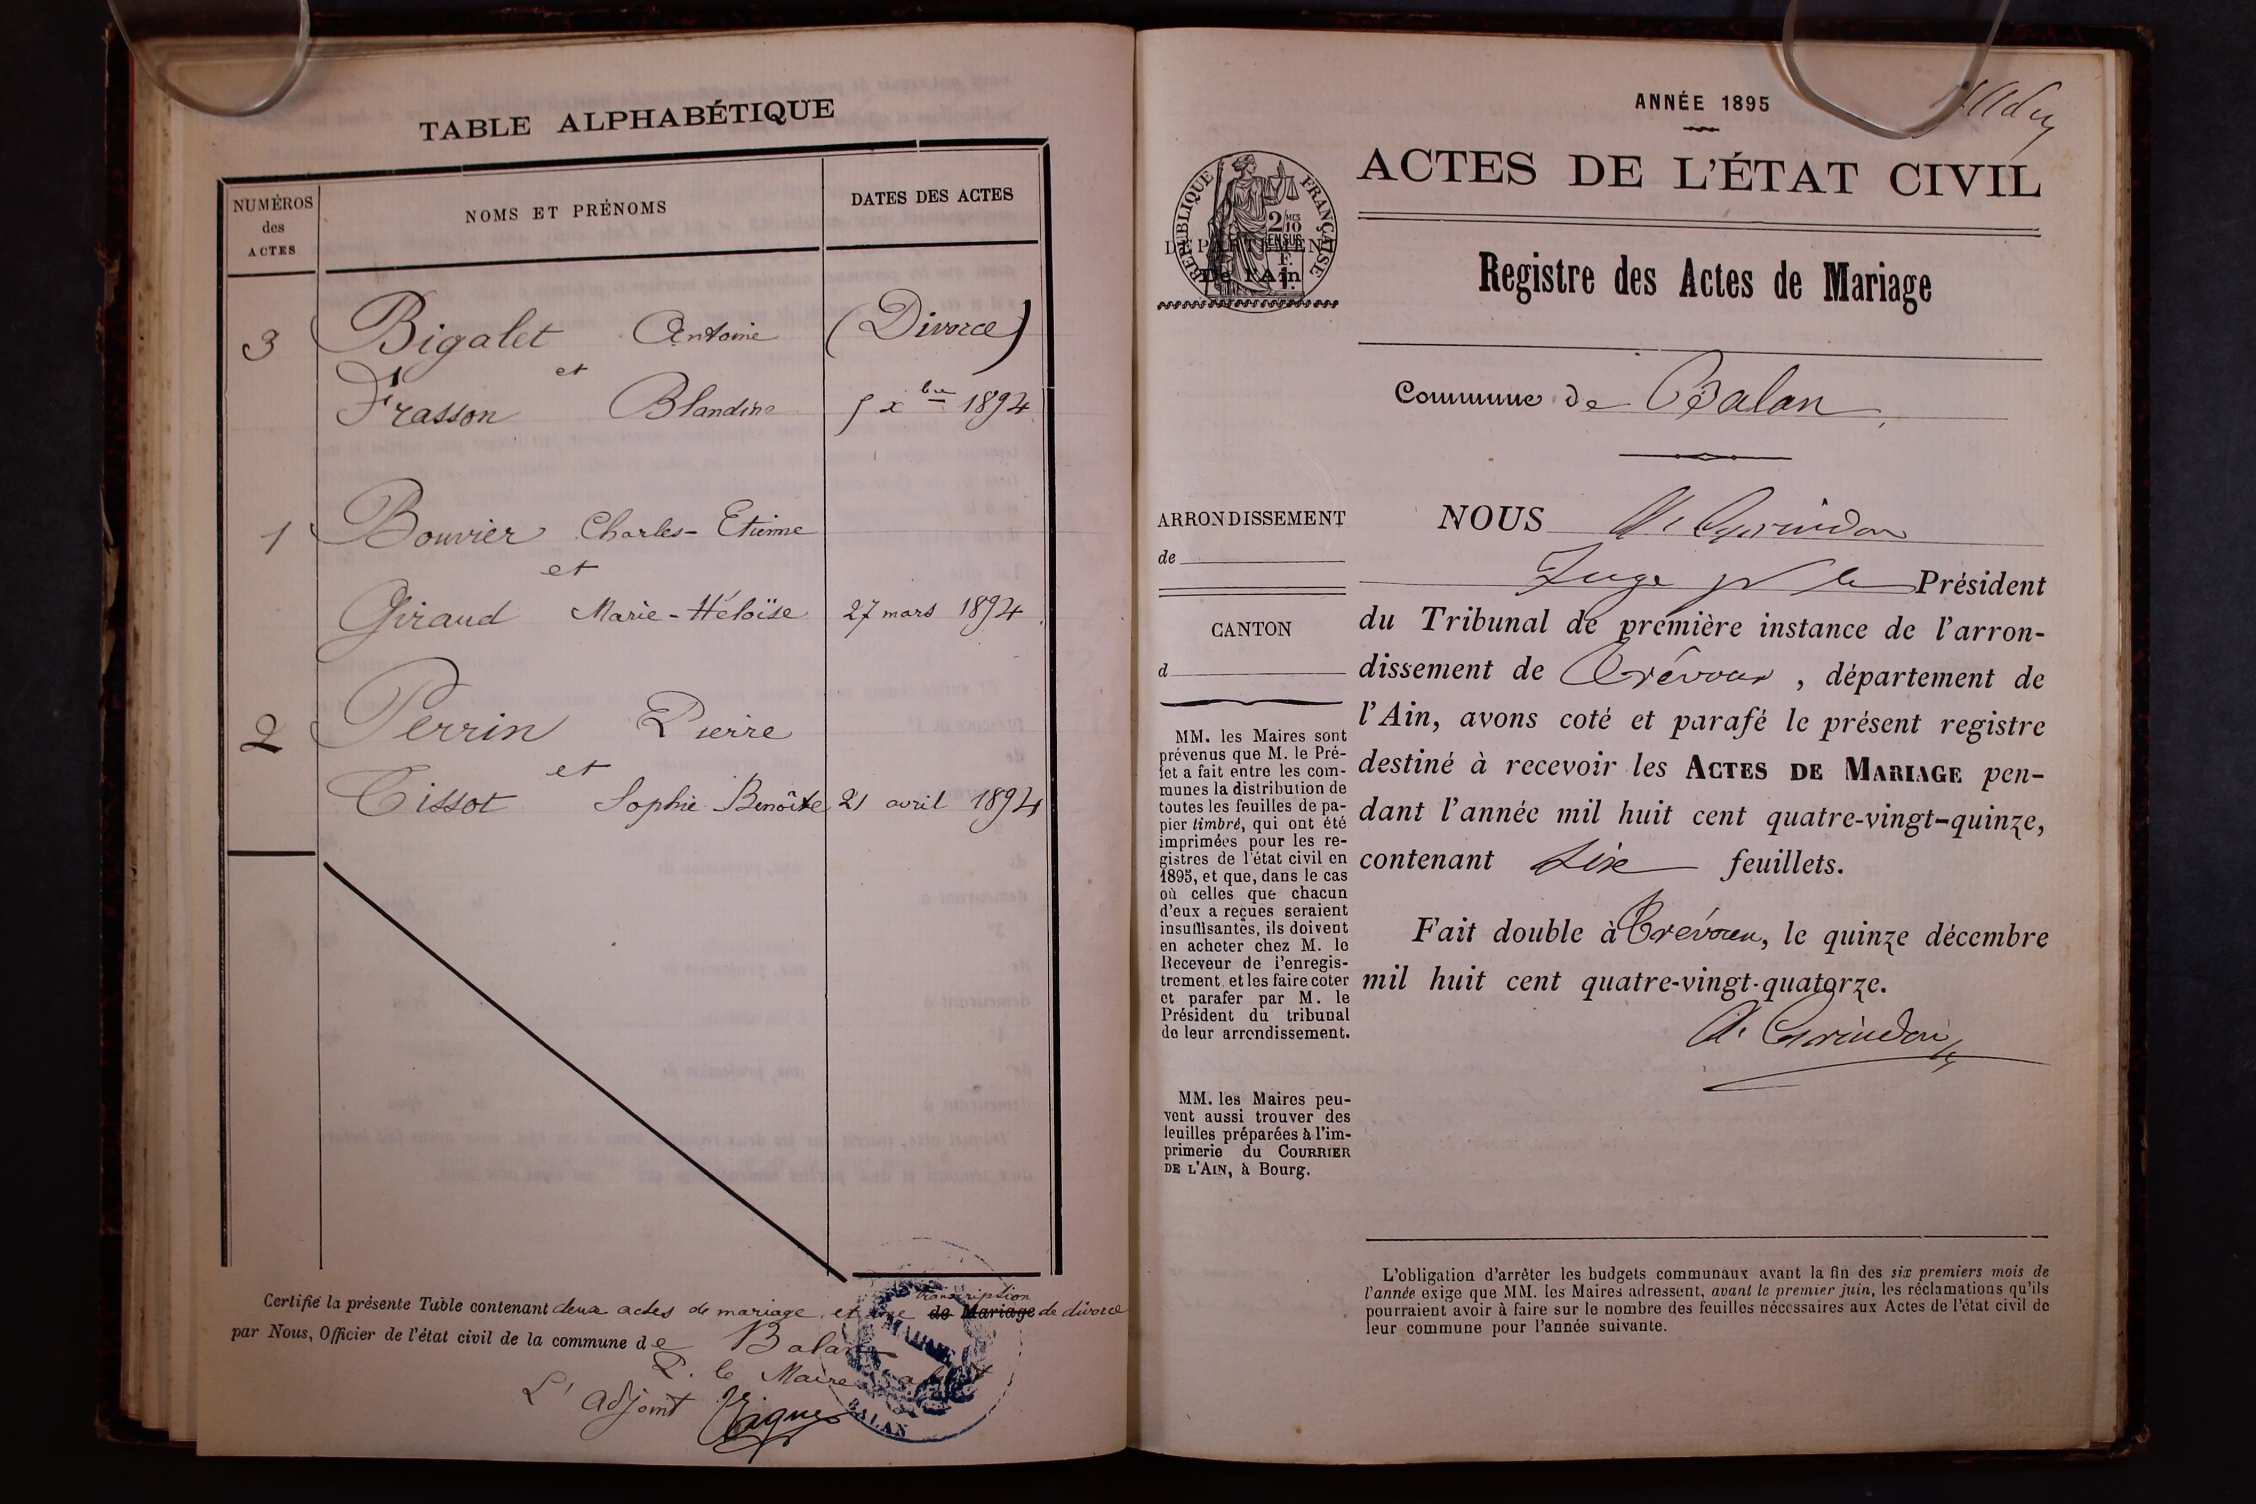 TABLE ALPHABÉTIQUE
NUMÉROS
des
ACTES
NOMS ET PRÉNOMS
DATES DES ACTES
3 Bigalet Antoine (Divorce)
et
Frasson Blandine 5 xbre 1894
1 Bouvier Charles-Etienne
et
Giraud Marie-Héloïse 27 mars 1894
2 Perrin Pierre
et
Tissot Sophie Benoîte 21 avril 1894
transcription
Certifié la présente Table contenant deux actes de mariage et une de Mariage de divorce
par Nous, Officier de l'état civil de la commune de Balan
P. le Maire absent
L'adjoint
MAIRIE
BALAN
ANNÉE 1895
ACTES DE L'ÉTAT CIVIL
RÉPUBLIQUE FRANÇAISE
2/10
MES
EN SUS
F.
1.
DÉPARTEMENT
De l'Ain
Registre des Actes de Mariage
Commune de Balan
ARRONDISSEMENT
de
CANTON
d
MM. les Maires sont
prévenus que M. le Pré-
fet a fait entre les com-
munes la distribution de
toutes les feuilles de pa-
pier timbré, qui ont été
imprimées pour les re-
gistres de l'état civil en
1895, et que, dans le cas
où celles que chacun
d'eux a reçues seraient
insuffisantes, ils doivent
en acheter chez M. le
Receveur de l'enregis-
trement et les faire coter
et parafer par M. le
Président du tribunal
de leur arrondissement.
MM. les Maires peu-
vent aussi trouver des
feuilles préparées à l'im-
primerie du COURRIER
DE L'AIN, à Bourg.
NOUS
Juge pr le Président
du Tribunal de première instance de l'arron-
dissement de Trévoux, département de
l'Ain, avons coté et parafé le présent registre
destiné à recevoir les ACTES DE MARIAGE pen-
dant l'année mil huit cent quatre-vingt-quinze,
contenant six feuillets.
Fait double à Trévoux, le quinze décembre
mil huit cent quatre-vingt-quatorze.
L'obligation d'arrêter les budgets communaux avant la fin des six premiers mois de
l'année exige que MM. les Maires adressent, avant le premier juin, les réclamations qu'ils
pourraient avoir à faire sur le nombre des feuilles nécessaires aux Actes de l'état civil de
leur commune pour l'année suivante.